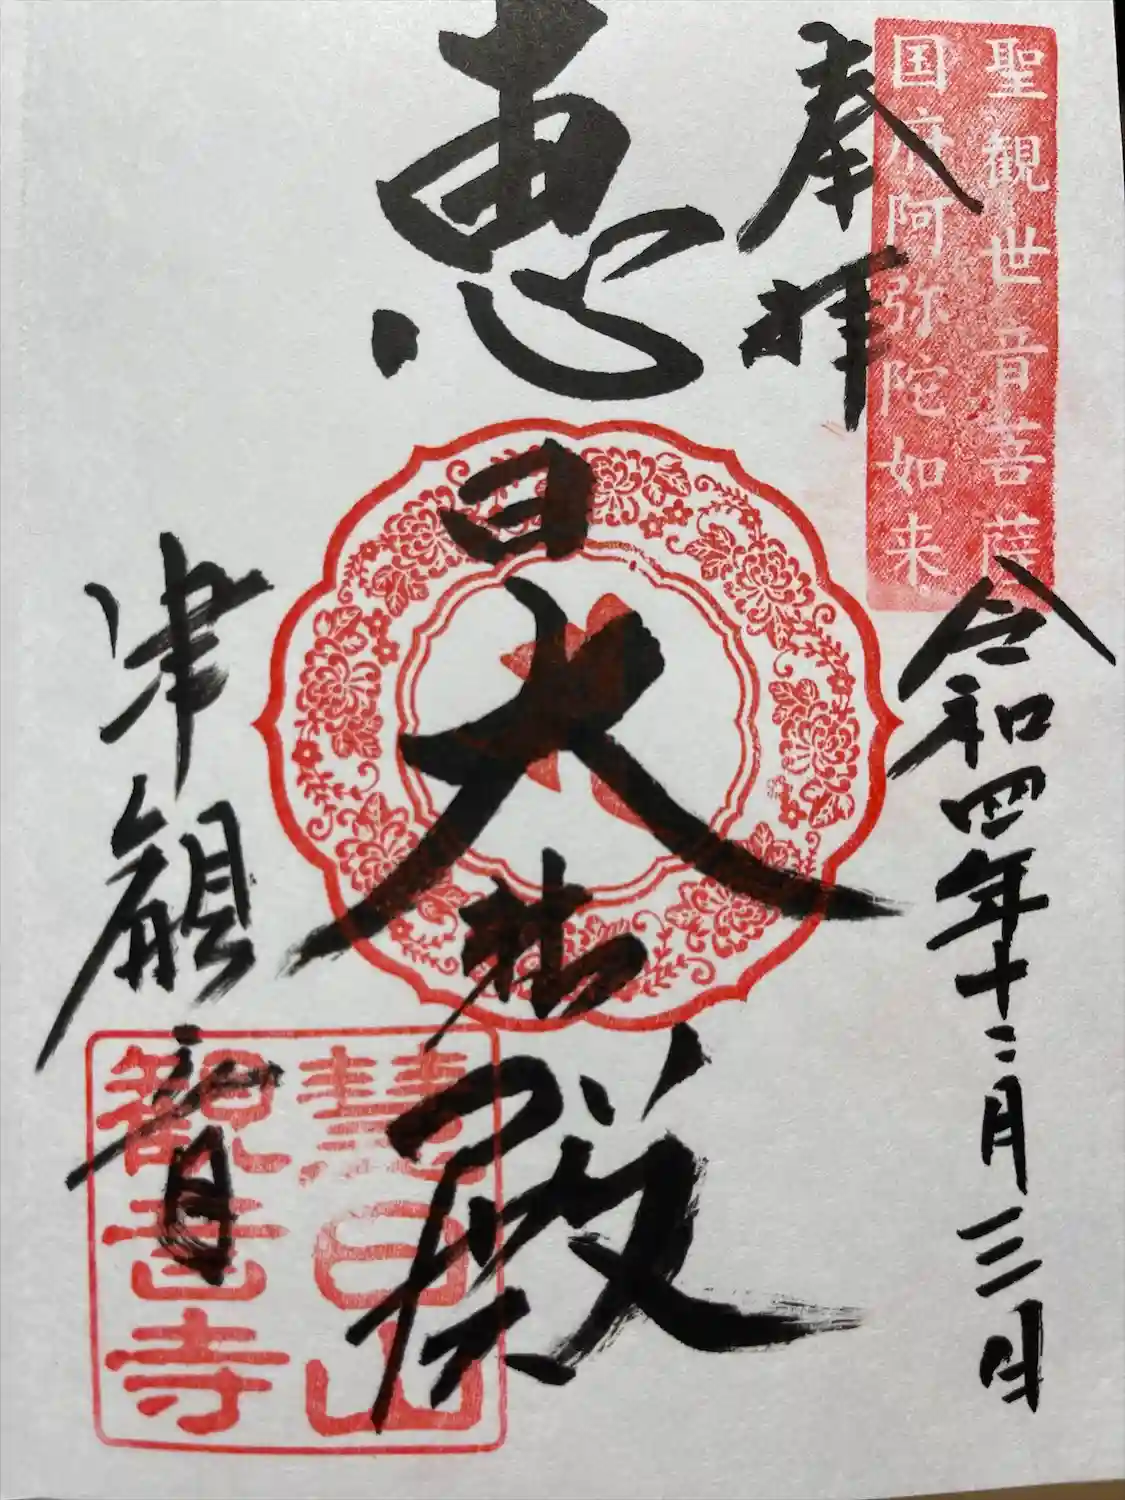 聖観世音菩薩
国府阿弥陀如来
奉拝
令和四年十二月三日
恵日大悲殿
津観音
慧日山
觀音寺